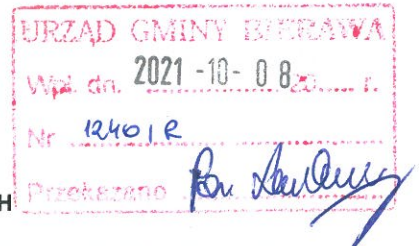 URZĄD GMINY BIERAWA
Wpł. dn. 2021 -10- 08 20 r.
Nr 12401R
H Przekazano Pan